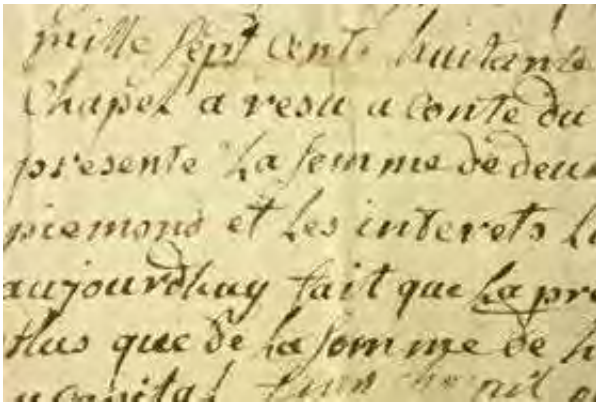 mille sept cent huitante
Chapel a resu a conte du
presente la somme de deux
piemond et les interets
aujourdhuy fait que la pre
plus que de la somme de
capital